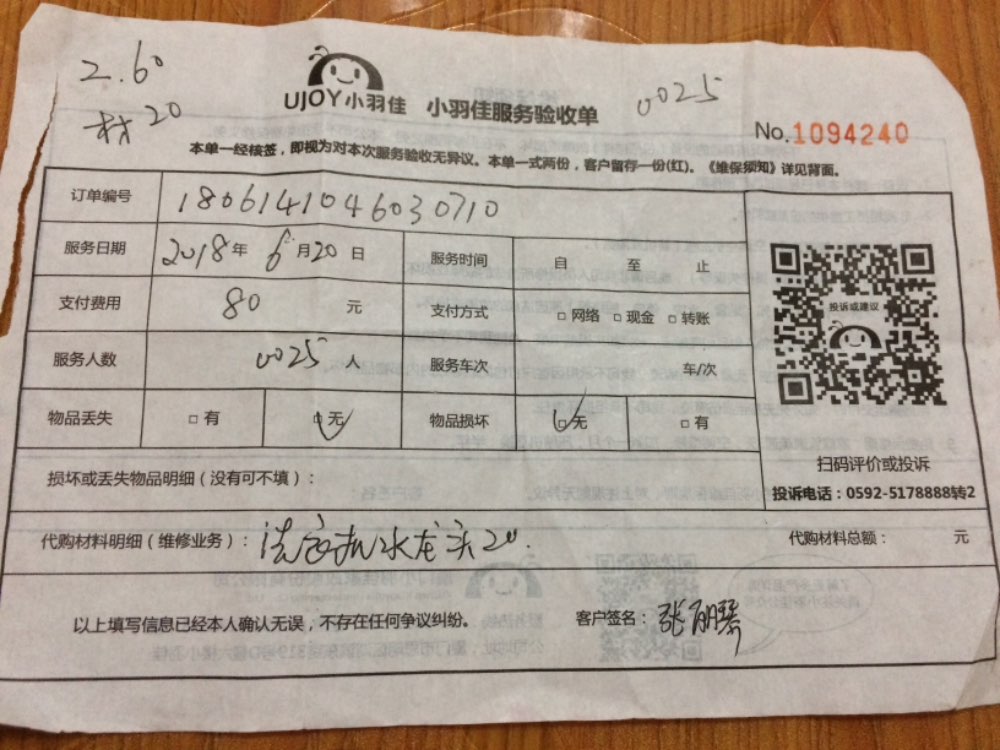 2.60
材20
UJOY小羽佳 小羽佳服务验收单
0025
No.1094240
本单一经核签，即视为对本次服务验收无异议。本单一式两份，客户留存一份(红)。《维保须知》详见背面。
订单编号 1806141046030710
服务日期 2018年6月20日 服务时间 自 至 止
支付费用 80 元 支付方式 □网络 □现金 □转账
投诉或建议
服务人数 0025 人 服务车次 车/次
物品丢失 □有 □无 物品损坏 □无 □有
扫码评价或投诉
损坏或丢失物品明细（没有可不填）：
投诉电话：0592-5178888转2
代购材料明细（维修业务）：洗衣机水龙头20. 代购材料总额： 元
以上填写信息已经本人确认无误，不存在任何争议纠纷。 客户签名：张丽琴